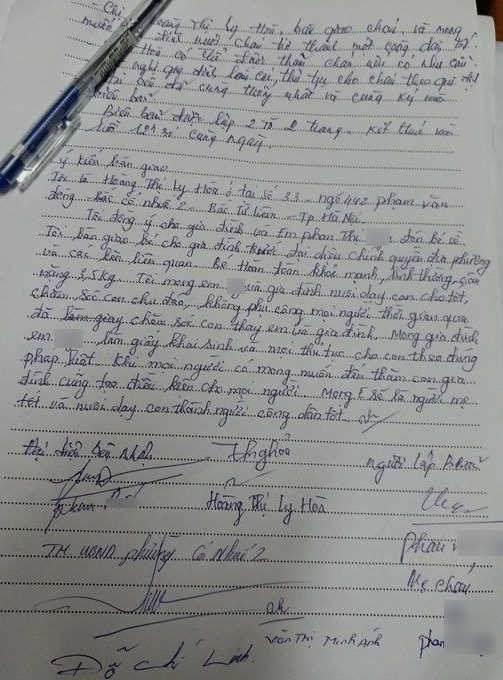 Chị Hoàng Thị Ly Hòa, bàn giao cháu, và mong
muốn gia đình nuôi cháu trở thành một công dân tốt
Hòa có thể đến thăm cháu nếu có nhu cầu
nghị gia đình làm các thủ tục cho cháu theo qui định
bên đã cùng thống nhất và cùng ký vào
biên bản.
Biên bản được lập 2 tờ 2 trang. Kết thúc vào
hồi 12h30 cùng ngày.
ý kiến bàn giao
Tôi là Hoàng Thị Ly Hòa ở tại số 33 ngõ 442 phạm văn
đồng cổ nhuế 2 - Bắc Từ Liêm - Tp Hà Nội.
Tôi đồng ý cho gia đình và Em phan Thu đón bé về
Tôi bàn giao bé cho gia đình trước đại diện Chính quyền địa phương
và các bên liên quan. Bé Hoàn toàn khỏe mạnh, bình thường, cân
nặng 3,5kg. Tôi mong em và gia đình nuôi dạy con cho tốt,
chăm sóc con chu đáo, không phụ công mọi người thời gian qua
đã chăm sóc con thay em và gia đình. Mong gia đình
em làm giấy khai sinh và mọi thủ tục cho con theo đúng
pháp luật. Khi mọi người có mong muốn đến thăm con gia
đình cũng tạo điều kiện cho mọi người. Mong E sẽ là người mẹ
tốt và nuôi dạy con thành người công dân tốt
Đại diện bên Nhận
Phan
Hoàng Thị Ly Hòa
người lập
Phan
TM UBND phường Cổ Nhuế 2
Mẹ cháu
phan
Văn Thị Minh Ánh
Đỗ Chí Linh